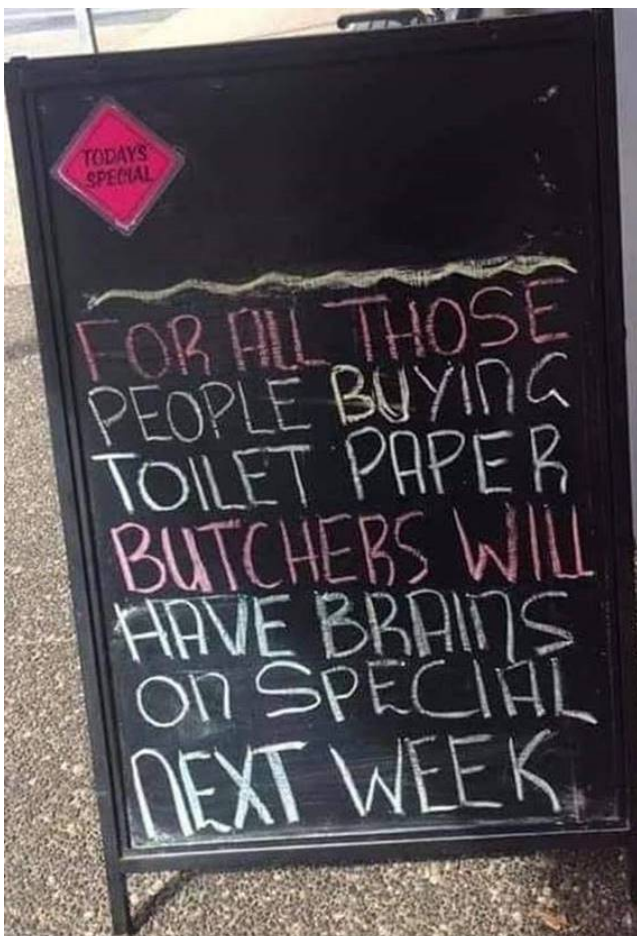 TODAYS
SPECIAL
FOR ALL THOSE
PEOPLE BUYING
TOILET PAPER
BUTCHERS WILL
HAVE BRAINS
ON SPECIAL
NEXT WEEK